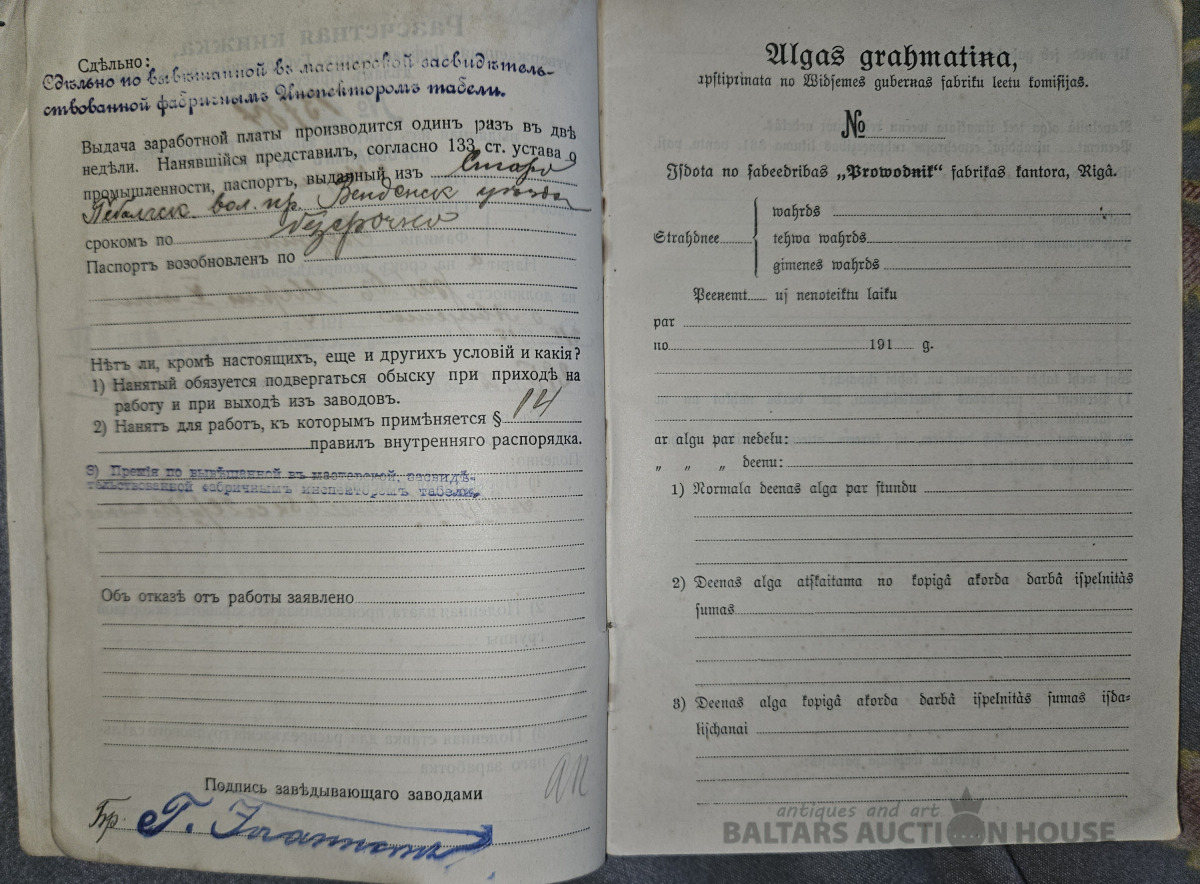 Сдѣльно:
Сдѣльно по вывѣшанной въ мастерской засвидѣтель-
ствованной фабричнымъ Инспекторомъ табели.
Выдача заработной платы производится одинъ разъ въ двѣ
недѣли. Нанявшійся представилъ, согласно 133 ст. устава о
промышленности, паспортъ, выданный изъ Старо
Пебалгск. вол. пр. Венденск уѣзда
срокомъ по безсрочно
Паспортъ возобновленъ по
Нѣтъ ли, кромѣ настоящихъ, еще и другихъ условій и какія?
1) Нанятый обязуется подвергаться обыску при приходѣ на
работу и при выходѣ изъ заводовъ.
2) Нанятъ для работъ, къ которымъ примѣняется § 14
правилъ внутренняго распорядка.
3) Премія по вывѣшанной въ мастерской, засвидѣ-
тельствованной фабричнымъ инспекторомъ табели,
Объ отказѣ отъ работы заявлено
Подпись завѣдывающаго заводами
Algas grahmatina,
apstiprinata no Widsemes gubernas fabriku leetu komisijas.
№
Isdota no sabeedribas „Prowodnik“ fabrikas kantora, Rigâ.
Strahdnee
wahrds
tehwa wahrds
gimenes wahrds
Peenemt us nenoteiktu laiku
par
no 191 g.
ar algu par nedelu:
„ „ „ deenu:
1) Normala deenas alga par stundu
2) Deenas alga atskaitama no kopigâ akorda darbâ ispelnitàs
sumas
3) Deenas alga kopigâ akorda darbâ ispelnitàs sumas isda-
lischanai
antiques and art
BALTARS AUCTION HOUSE